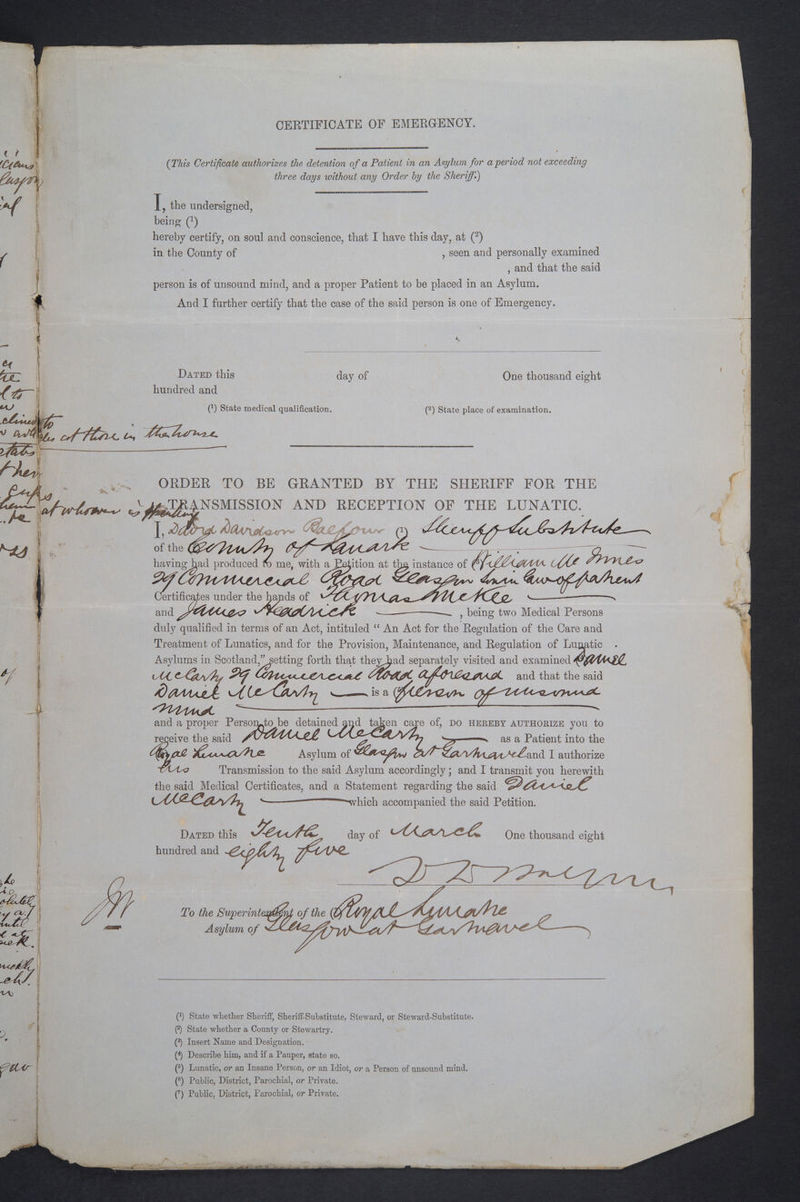 CERTIFICATE OF EMERGENCY.
(This Certificate authorizes the detention of a Patient in an Asylum for a period not exceeding
three days without any Order by the Sheriff.)
I, the undersigned,
being (1)
hereby certify, on soul and conscience, that I have this day, at (2)
in the County of , seen and personally examined
, and that the said
person is of unsound mind, and a proper Patient to be placed in an Asylum.
And I further certify that the case of the said person is one of Emergency.
DATED this day of One thousand eight
hundred and
(1) State medical qualification. (2) State place of examination.
at those in the house
ORDER TO BE GRANTED BY THE SHERIFF FOR THE
TRANSMISSION AND RECEPTION OF THE LUNATIC.
I, David Davidson Balfour (1) Sheriff Substitute
of the County of Lanark
having had produced to me, with a Petition at the instance of William Mc Innes
29 Commercial Road Glasgow
Certificates under the hands of Thomas McKee
and James Headrick , being two Medical Persons
duly qualified in terms of an Act, intituled "An Act for the Regulation of the Care and
Treatment of Lunatics, and for the Provision, Maintenance, and Regulation of Lunatic
Asylums in Scotland," setting forth that they had separately visited and examined Daniel
McCarthy 29 Commercial Road aforesaid and that the said
Daniel McCarthy is a person of unsound
mind
and a proper Person to be detained and taken care of, DO HEREBY AUTHORIZE you to
receive the said Daniel McCarthy as a Patient into the
Royal Lunatic Asylum of Glasgow at Gartnavel and I authorize
his Transmission to the said Asylum accordingly; and I transmit you herewith
the said Medical Certificates, and a Statement regarding the said Daniel
McCarthy which accompanied the said Petition.
DATED this Tenth day of March One thousand eight
hundred and eighty five
To the Superintendent of the Royal Lunatic
Asylum of Glasgow at Gartnavel
(1) State whether Sheriff, Sheriff-Substitute, Steward, or Steward-Substitute.
(2) State whether a County or Stewartry.
(3) Insert Name and Designation.
(4) Describe him, and if a Pauper, state so.
(5) Lunatic, or an Insane Person, or an Idiot, or a Person of unsound mind.
(6) Public, District, Parochial, or Private.
(7) Public, District, Parochial, or Private.